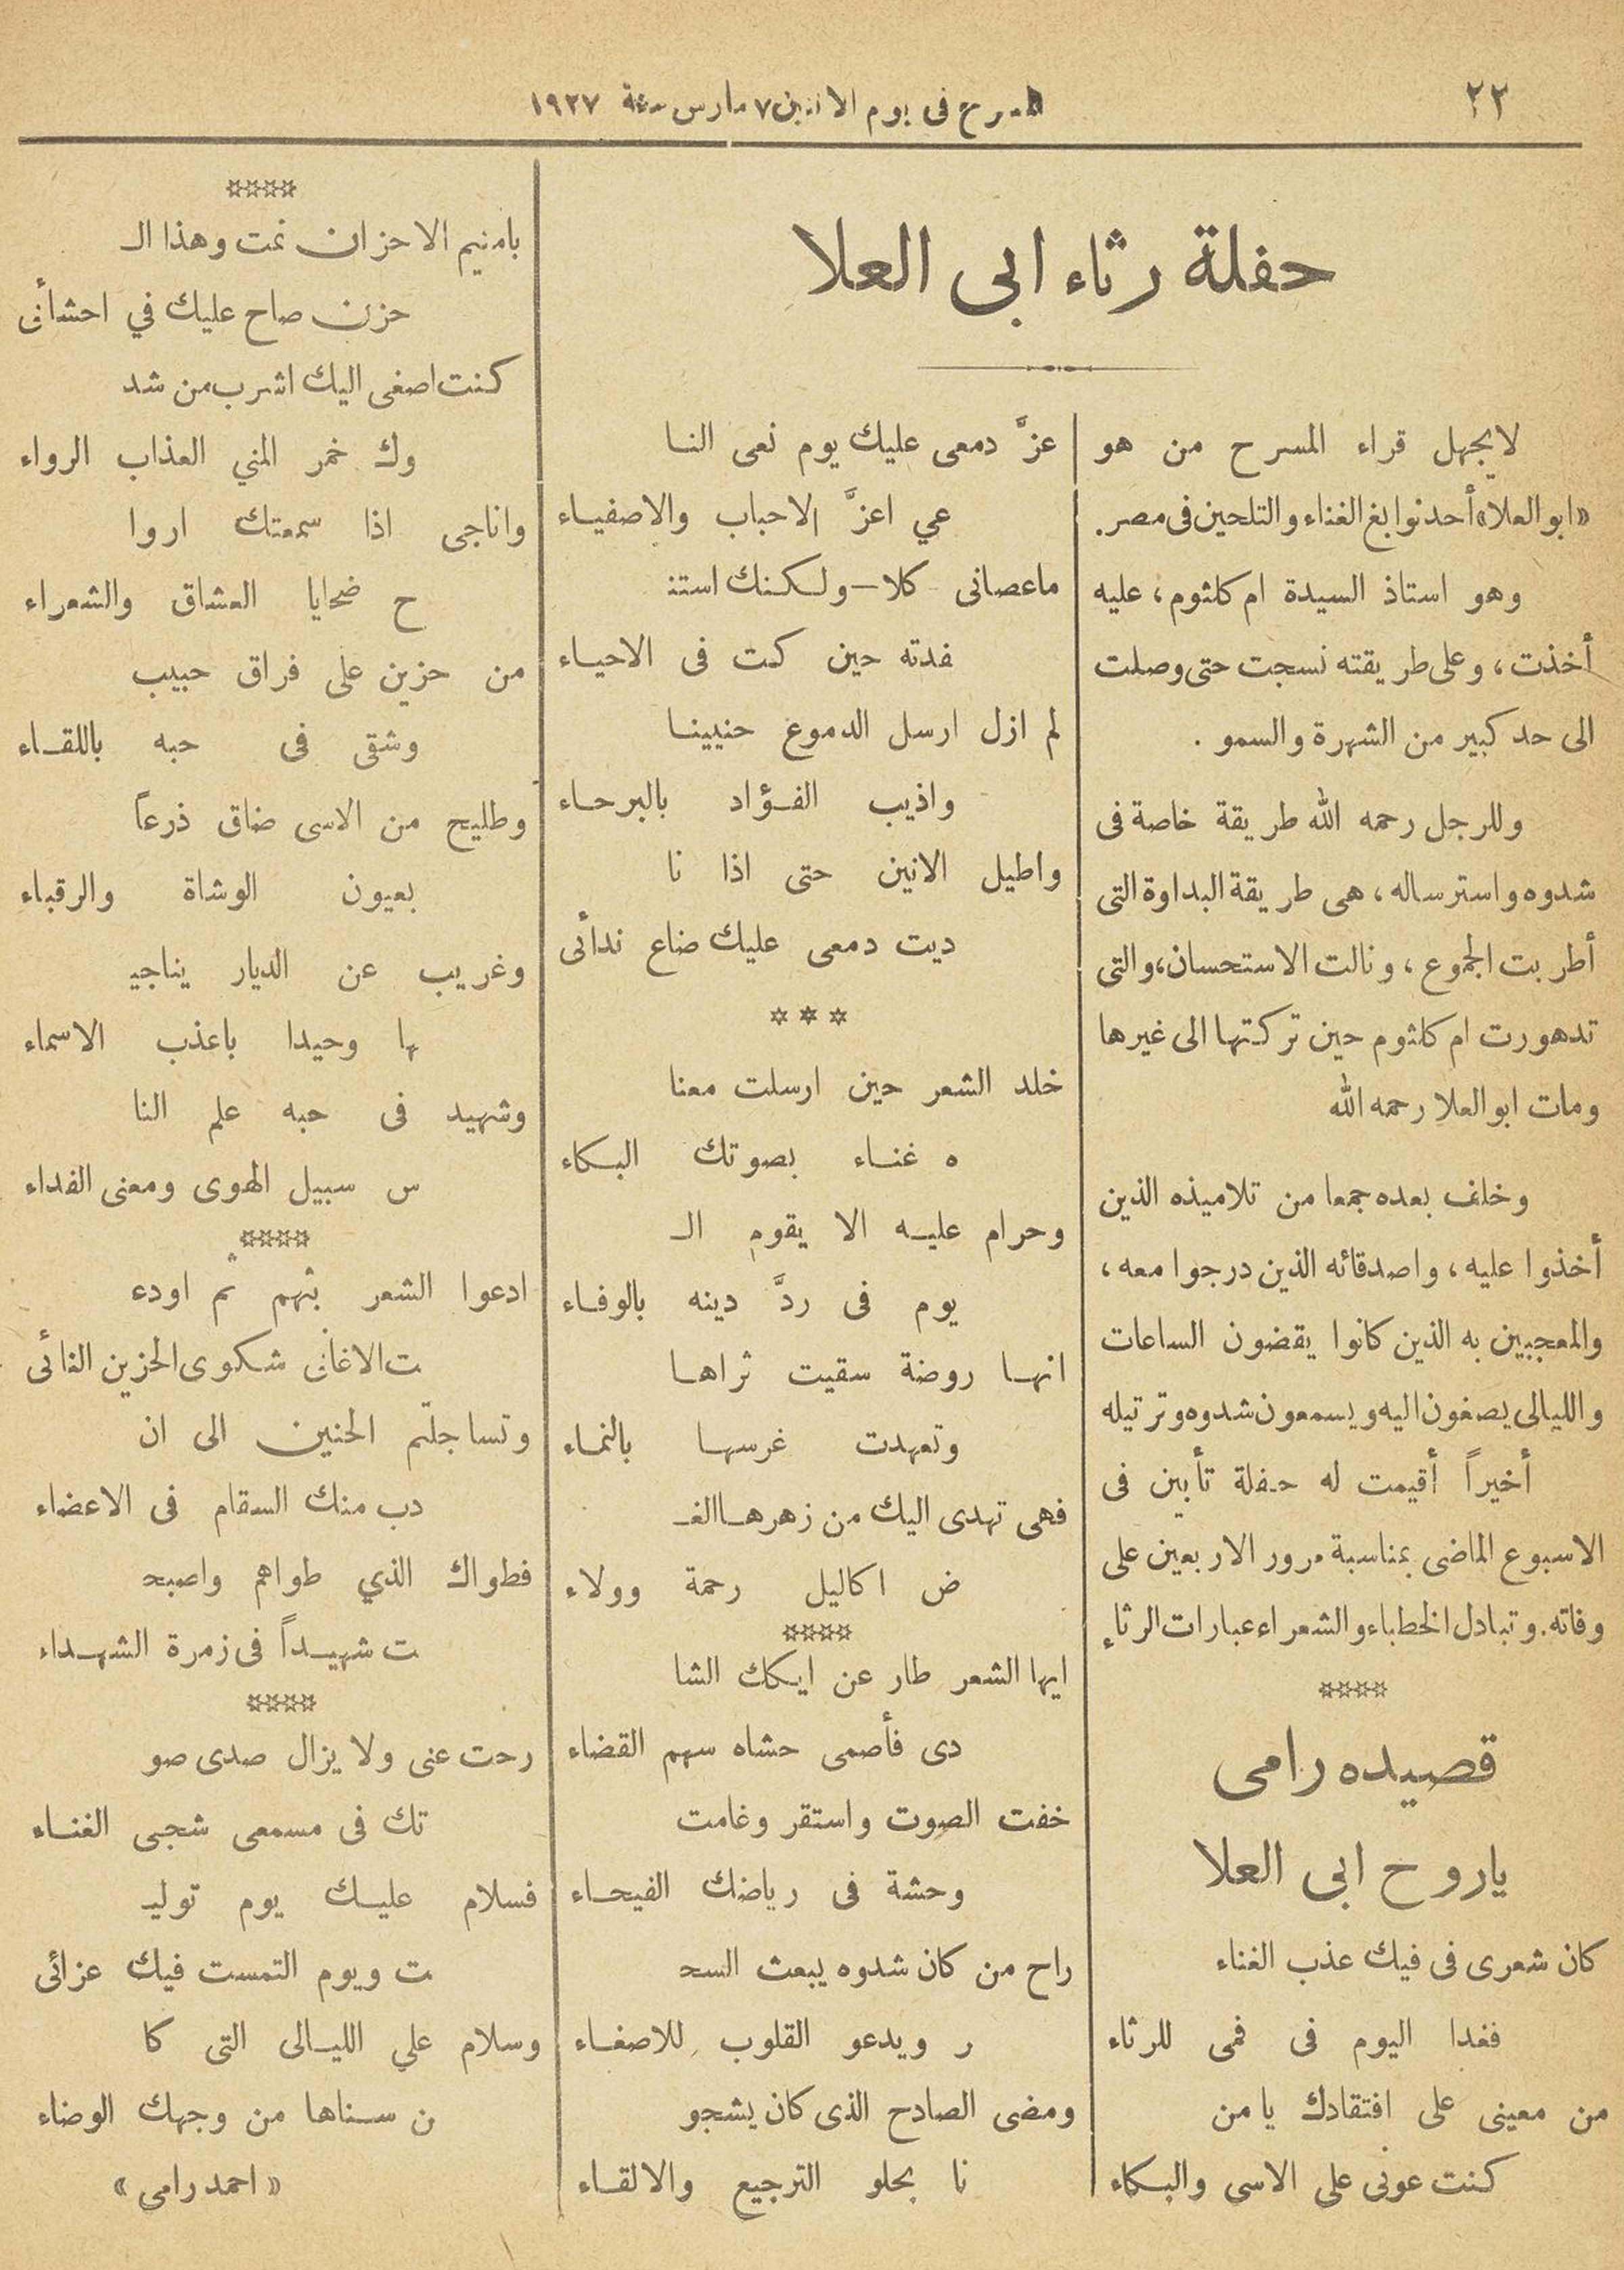 ٢٢
المسرح فى يوم الاثنين ٧ مارس سنة ١٩٢٧
حفلة رثاء ابى العلا
لايجهل قراء المسرح من هو
«ابو العلا» أحد نوابغ الغناء والتلحين فى مصر.
وهو استاذ السيدة ام كلثوم، عليه
أخذت، وعلى طريقته نسجت حتى وصلت
الى حد كبير من الشهرة والسمو .
وللرجل رحمه الله طريقة خاصة فى
شدوه واسترساله، هى طريقة البداوة التى
أطربت الجموع، ونالت الاستحسان، والتى
تدهورت ام كلثوم حين تركتها الى غيرها
ومات ابو العلا رحمه الله
وخلف بعده جمعا من تلاميذه الذين
أخذوا عليه، واصدقائه الذين درجوا معه،
والمعجبين به الذين كانوا يقضون الساعات
والليالى يصغون اليه ويسمعون شدوه وترتيله
أخيراً أقيمت له حفلة تأبين فى
الاسبوع الماضى بمناسبة مرور الاربعين على
وفاته. وتبادل الخطباء والشعراء عبارات الرثاء
****
قصيده رامى
ياروح ابى العلا
كان شعرى فى فيك عذب الغناء
فغدا اليوم فى فمى للرثاء
من معينى على افتقادك يا من
كنت عونى على الاسى والبكاء
عزَّ دمعى عليك يوم نعى النا
عي اعزَّ الاحباب والاصفياء
ماعصانى كلا—ولكنك استنـ
فدته حين كنت فى الاحياء
لم ازل ارسل الدموع حنيينا
واذيب الفؤاد بالبرحاء
واطيل الانين حتى اذا نا
ديت دمعى عليك ضاع ندأنى
* * *
خلد الشعر حين ارسلت معنا
ه غناء بصوتك البكاء
وحرام عليه الا يقوم الـ
يوم فى ردَّ دينه بالوفاء
انها روضة سقيت ثراها
وتعهدت غرسها بالنماء
فهى تهدى اليك من زهرها الغـ
ض اكاليل رحمة وولاء
****
ايها الشعر طار عن ايكك الشا
دى فأصمى حشاه سهم القضاء
خفت الصوت واستقر وغامت
وحشة فى رياضك الفيحاء
راح من كان شدوه يبعث السحـ
ر ويدعو القلوب للاصغاء
ومضى الصادح الذى كان يشجو
نا بحلو الترجيع والالقاء
****
يامنيم الاحزان نمت وهذا الـ
حزن صاح عليك في احشأنى
كنت اصغى اليك اشرب من شد
وك خمر المني العذاب الرواء
واناجى اذا سمعتك اروا
ح ضحايا العشاق والشعراء
من حزين على فراق حبيب
وشقى فى حبه باللقاء
وطليح من الاسى ضاق ذرعاً
بعيون الوشاة والرقباء
وغريب عن الديار يناجيـ
ها وحيدا باعذب الاسماء
وشهيد فى حبه علم النا
س سبيل الهوى ومعنى الفداء
****
ادعوا الشعر بثهم ثم اودعـ
ت الاغانى شكوى الحزين النائى
وتساجلتم الحنين الى ان
دب منك السقام فى الاعضاء
فطواك الذي طواهم واصبحـ
ت شهيداً فى زمرة الشهداء
****
رحت عنى ولا يزال صدى صو
تك فى مسمعى شجى الغناء
فسلام عليك يوم توليـ
ت ويوم التمست فيك عزائى
وسلام علي الليالى التى كا
ن سناها من وجهك الوضاء
«احمد رامى»